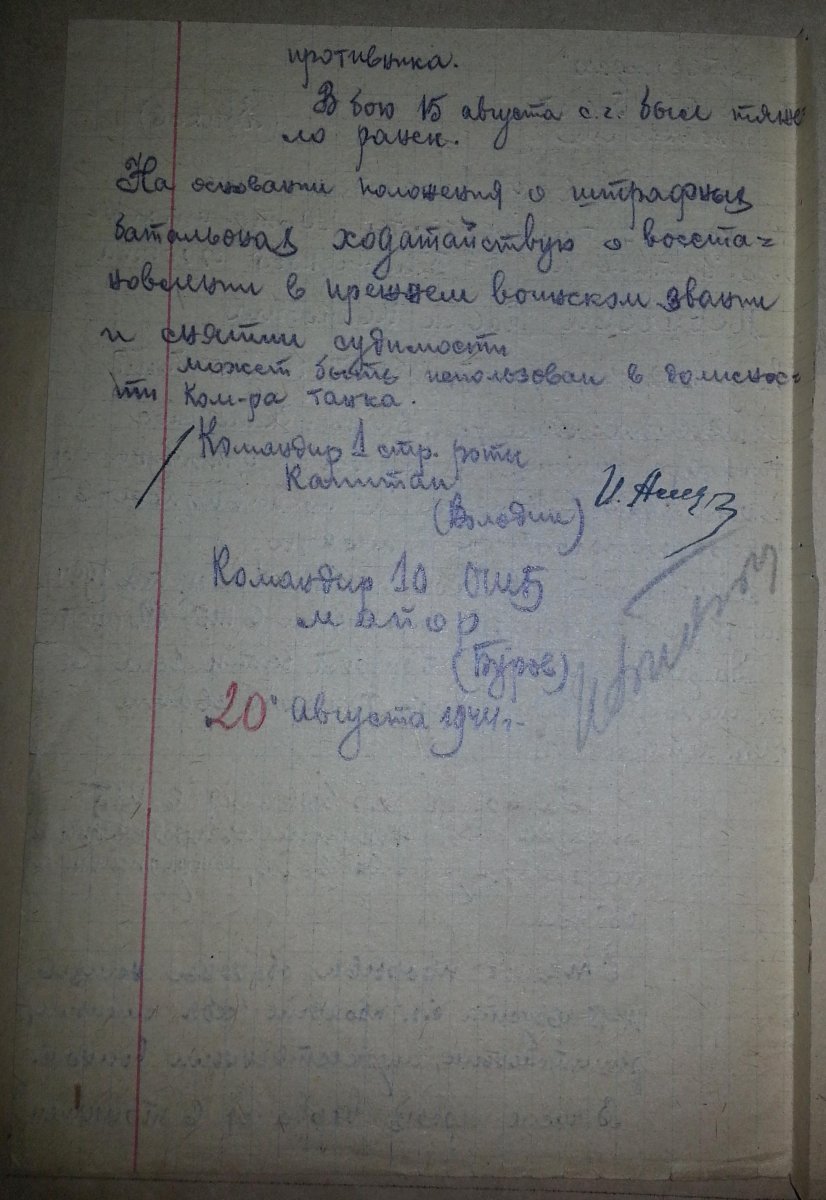 противника.
В бою 15 августа с.г. был тяже
ло ранен.
На основании положения о штрафных
батальонах ходатайствую о восста=
новлении в прежнем воинском звании
и снятии судимости
может быть использован в должнос=
ти ком-ра танка.
Командир 1 стр. роты
Капитан
(Володин)
Командир 10 ОШБ
майор
(Буров)
20 августа 1944 г.